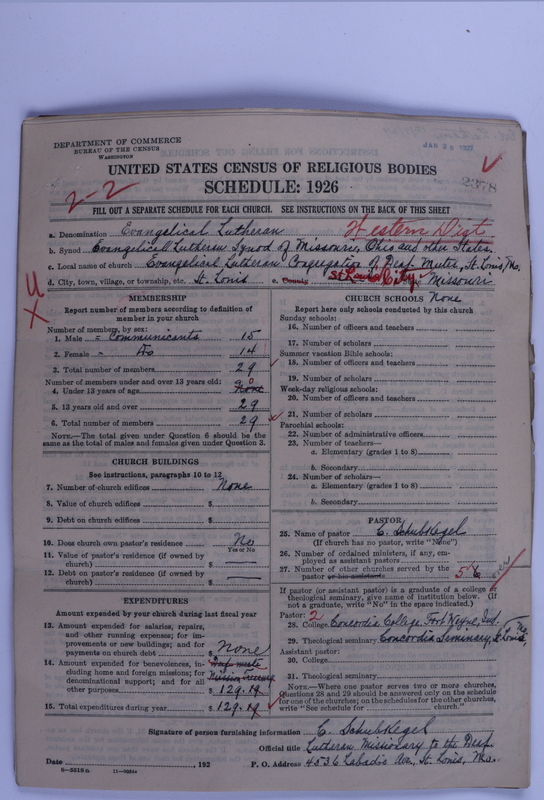 DEPARTMENT OF COMMERCE
BUREAU OF THE CENSUS
WASHINGTON
JAN 1927
UNITED STATES CENSUS OF RELIGIOUS BODIES
SCHEDULE: 1926
2-2
FILL OUT A SEPARATE SCHEDULE FOR EACH CHURCH. SEE INSTRUCTIONS ON THE BACK OF THIS SHEET
a. Denomination Evangelical Lutheran Western Dist.
b. Synod Evangelical Lutheran Synod of Missouri, Ohio and other States
c. Local name of church Evangelical Lutheran Congregation of Deaf Mutes, St. Louis, Mo.
d. City, town, village, or township, etc. St. Louis e. County St Louis City, Missouri
MEMBERSHIP
Report number of members according to definition of
member in your church
Number of members, by sex:
1. Male = Communicants 15
2. Female " Do 14
3. Total number of members 29
Number of members under and over 13 years old:
4. Under 13 years of age None
5. 13 years old and over 29
6. Total number of members 29
NOTE.—The total given under Question 6 should be the
same as the total of males and females given under Question 3.
CHURCH BUILDINGS
See instructions, paragraphs 10 to 12
7. Number of church edifices None
8. Value of church edifices $
9. Debt on church edifices $
10. Does church own pastor's residence No
Yes or No
11. Value of pastor's residence (if owned by
church) $
12. Debt on pastor's residence (if owned by
church) $
EXPENDITURES
Amount expended by your church during last fiscal year
13. Amount expended for salaries, repairs,
and other running expenses; for im-
provements or new buildings; and for
payments on church debt $ None
14. Amount expended for benevolences, in-
cluding home and foreign missions; for
denominational support; and for all
other purposes $ 129.19
15. Total expenditures during year $ 129.19
CHURCH SCHOOLS None
Report here only schools conducted by this church
Sunday schools:
16. Number of officers and teachers
17. Number of scholars
Summer vacation Bible schools:
18. Number of officers and teachers
19. Number of scholars
Week-day religious schools:
20. Number of officers and teachers
21. Number of scholars
Parochial schools:
22. Number of administrative officers
23. Number of teachers—
a. Elementary (grades 1 to 8)
b. Secondary
24. Number of scholars—
a. Elementary (grades 1 to 8)
b. Secondary
PASTOR
25. Name of pastor C. Schubkegel
(If church has no pastor, write "None")
26. Number of ordained ministers, if any, em-
ployed as assistant pastors
27. Number of other churches served by the
pastor or his assistants 5
If pastor (or assistant pastor) is a graduate of a college or
theological seminary, give name of institution below. (If
not a graduate, write "No" in the space indicated.)
Pastor: 2
28. College Concordia College, Fort Wayne, Ind.
29. Theological seminary Concordia Seminary, St. Louis, Mo.
Assistant pastor:
30. College
31. Theological seminary
NOTE.—Where one pastor serves two or more churches,
Questions 28 and 29 should be answered only on the schedule
for one of the churches; on the schedules for the other churches,
write "See schedule for church."
Signature of person furnishing information C. Schubkegel
Official title Lutheran Missionary to the Deaf
Date , 192 P. O. Address 4536 Labadie Ave., St. Louis, Mo.